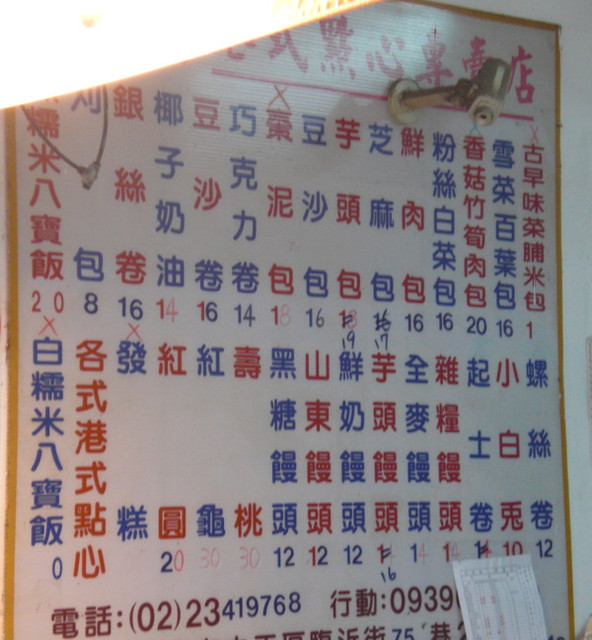 港式點心專賣店
古早味菜脯米包 1
雪菜百葉包 16
香菇竹筍肉包 20
粉絲白菜包 16
鮮肉包 16
芝麻包 17
芋頭包 19
豆沙包 16
棗泥包 18
巧克力卷 14
豆沙卷 16
椰子奶油 14
銀絲卷 16
刈包 8
糯米八寶飯 20
螺絲卷 12
小白兎 10
起士卷
雜糧饅頭 14
全麥饅頭 14
芋頭饅頭 16
鮮奶饅頭 12
山東饅頭 12
黑糖饅頭 12
壽桃 30
紅龜 30
紅圓 20
發糕
各式港式點心
白糯米八寶飯 0
電話:(02)23419768 行動:0939
臨沂街75巷2